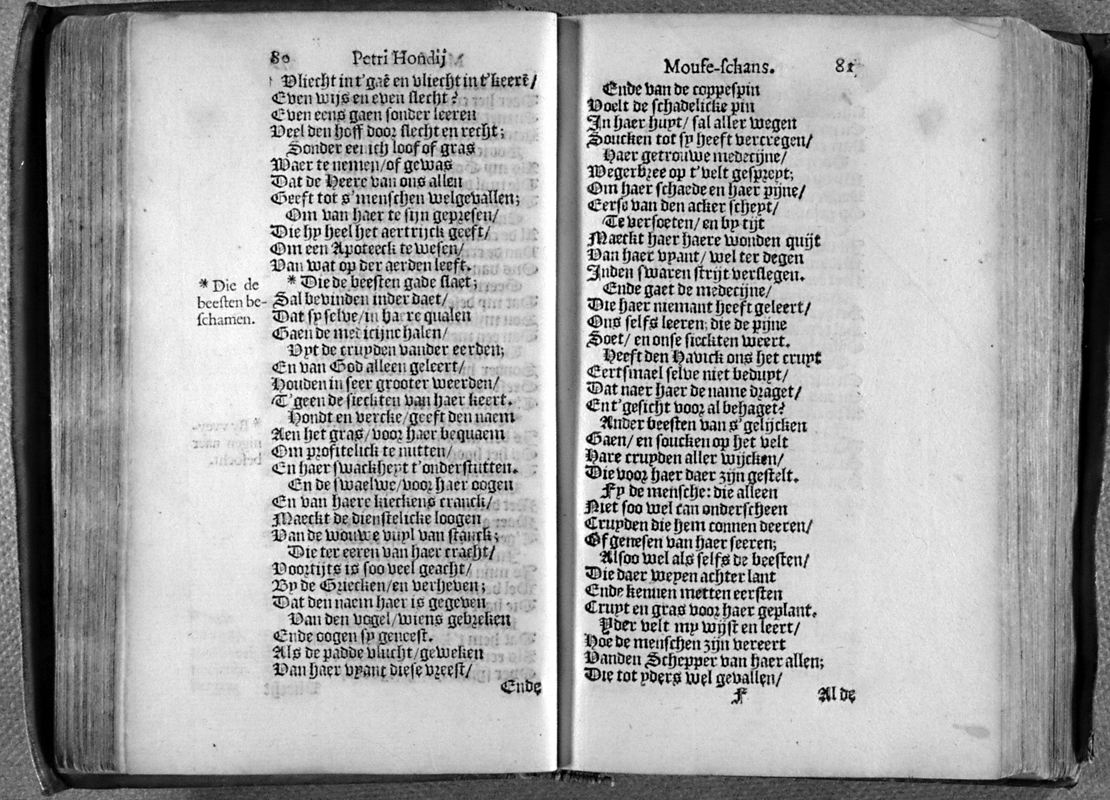 80 Petri Hondij
Vliecht in t'gaē en vliecht in t'keerē/
Even wijs en even slecht?
Even eens gaen sonder leeren
Veel den hoff door slecht en recht;
Sonder eenich loof of gras
Waer te nemen/of gewas
Dat de Heere van ons allen
Geeft tot s'menschen welgevallen;
Om van haer te sijn gepresen/
Die hy heel het aertrijck geeft/
Om een Apoteeck te wesen/
Van wat op der aerden leeft.
* Die de beesten gade slaet;
Sal bevinden inder daet/
Dat sy selve/in haere qualen
Gaen de medicijne halen/
Vyt de cruyden vander eerden;
En van God alleen geleert/
Houden in seer grooter weerden/
T'geen de sieckten van haer keert.
Hondt en vercke/geeft den naem
Aen het gras/voor haer bequaem
Om profitelick te nutten/
En haer swackheyt t'onderstutten.
En de swaelwe/voor haer oogen
En van haere kieckens cranck/
Maeckt de dienstelicke loogen
Van de wouwe vuyl van stanck;
Die ter eeren van haer cracht/
Voortijts is soo veel geacht/
By de Griecken/en verheven;
Dat den naem haer is gegeven
Van den vogel/wiens gebreken
Ende oogen sy geneest.
Als de padde vlucht/geweken
Van haer vyant diese vreest/
Ende
* Die de
beesten be-
schamen.
Mouse-schans. 81
Ende van de coppespin
Voelt de schadelicke pin
In haer huyt/ sal aller wegen
Soucken tot sy heeft vercregen/
Haer getrouwe medecijne/
Wegerbree op t'velt gespreyt;
Om haer schaede en haer pijne/
Eerse van den acker scheyt/
Te versoeten/ en by tijt
Maeckt haer haere wonden quijt
Van haer vyant/ wel ter degen
Inden swaren strijt verslegen.
Ende gaet de medecijne/
Die haer niemant heeft geleert/
Ons selfs leeren; die de pijne
Soet/ en onse sieckten weert.
Heeft den Havick ons het cruyt
Eertsmael selve niet beduyt/
Dat naer haer de name draget/
En t'gesicht voor al behaget?
Ander beesten van s'gelijcken
Gaen/ en soucken op het velt
Hare cruyden aller wijcken/
Die voor haer daer zijn gestelt.
Fy de mensche: die alleen
Niet soo wel can onderscheen
Cruyden die hem connen deeren/
Of genesen van haer seeren;
Alsoo wel als selfs de beesten/
Die daer weyen achter lant
Ende kennen metten eersten
Cruyt en gras voor haer geplant.
Yder velt my wijst en leert/
Hoe de menschen zijn vereert
Vanden Schepper van haer allen;
Die tot yders wel gevallen/
F Al de